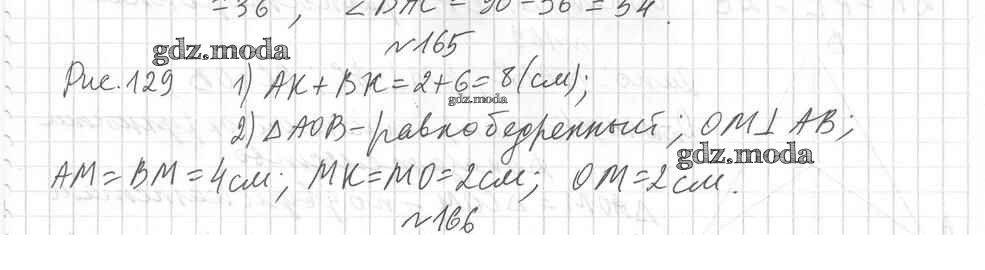 = 36 , ∠BAC = 90 - 36 = 54.
№165
gdz.moda
Рис. 129 1) AK + BK = 2 + 6 = 8 (см);
gdz.moda
2) △AOB - равнобедренный; OM⊥AB;
gdz.moda
AM = BM = 4 см; MK = MO = 2 см; OM = 2 см.
№166